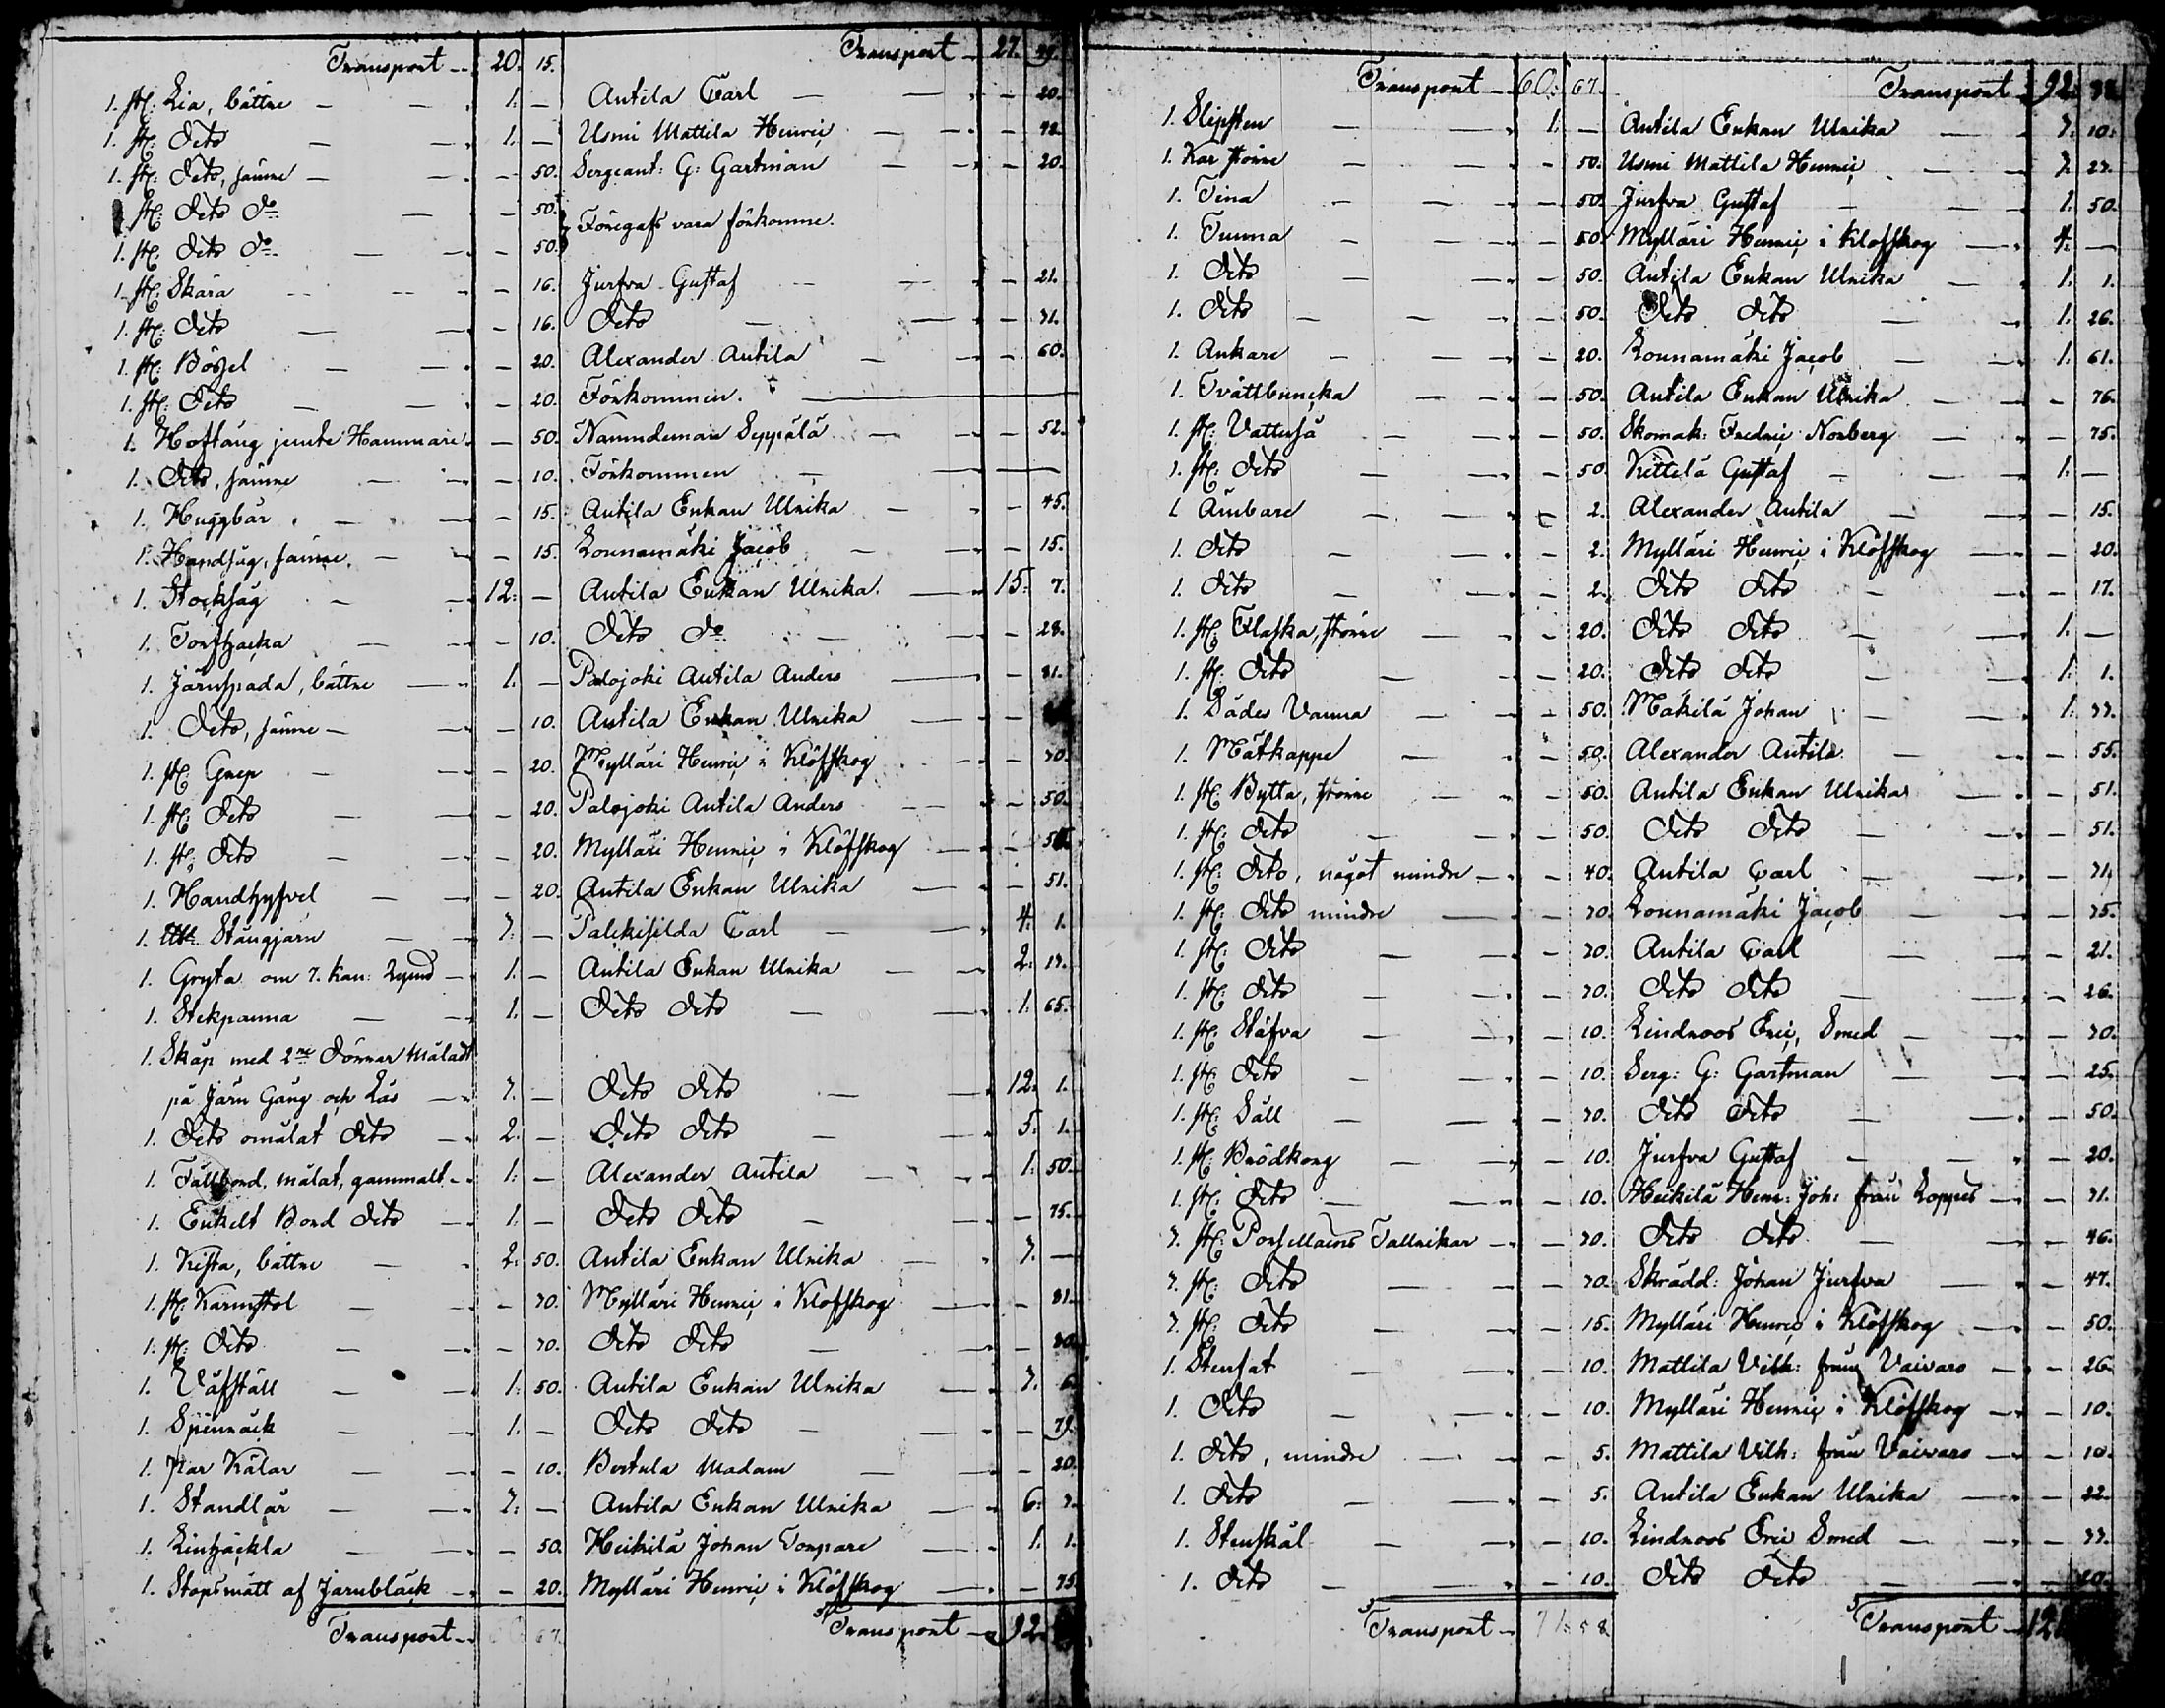 Transport 20. 15. Transport 27. 39.
1. st: Lia, bättre 1. — Antila Carl — 20.
1. st: Dito 1. — Usmi Mattila Henric — 42.
1. st: Dito, sämre — 50. Sergeant: G: Gartman — 20.
st: Dito Do — 50. Föregafs vara förkomne.
1. st: Dito Do — 50.
1. st: Skära — 16. Jurfva Gustaf — 21.
1. st: Dito — 16. Dito — 31.
1. st: Bössel — 20. Alexander Antila — 60.
1. st: Dito — 20. Förkommen.
1. Hoftång jemte Hammare — 50. Nämndeman Seppälä — 52.
1. Dito, sämre — 10. Förkommen —
1. Huggbär — 15. Antila Enkan Ulrika — 45.
1. Handsåg, sämre — 15. Lounamäki Jacob — 15.
1. Stocksåg 12. — Antila Enkan Ulrika 15. 7.
1. Torfhacka — 10. Dito Do — 28.
1. Järnspada, bättre 1. — Palojoki Antila Anders — 31.
1. Dito, sämre — 10. Antila Enkan Ulrika —
1. st: Grep — 20. Mylläri Henric i Klöfskog — 30.
1. st: Dito — 20. Palojoki Antila Anders — 50.
1. st: Dito — 20. Mylläri Henric i Klöfskog —
1. Handhyfvel — 20. Antila Enkan Ulrika — 51.
1. Stångjärn 3. — Palikisilda Carl 4. 1.
1. Gryta om 3. Kan: Rymd 1. — Antila Enkan Ulrika 2. 13.
1. Stekpanna 1. — Dito Dito 1. 65.
1. Skåp med 2ne Dörrar Måladt
på Järn Gång och Lås 3. — Dito Dito 12. 1.
1. Dito omålat Dito 2. — Dito Dito 5. 1.
1. Fällbord, målat, gammalt 1. — Alexander Antila 1. 50.
1. Enkelt Bord Dito 1. — Dito Dito — 75.
1. Kista, bättre 2. 50. Antila Enkan Ulrika 3. —
1. st: Karmstol — 30. Mylläri Henric i Klöfskog — 31.
1. st: Dito — 30. Dito Dito — 30.
1. Väfställ 1. 50. Antila Enkan Ulrika 3. 6.
1. Spinnrock 1. — Dito Dito —
1. Par Kålar — 10. Bertula Madam — 20.
1. Standlår 3. — Antila Enkan Ulrika 6. 3.
1. Linhäckla — 50. Heikilä Johan Torpare 1. 1.
1. Stopsmått af Jarnbläck — 20. Mylläri Henric i Klöfskog — 75.
Transport 67. Transport 92.
Transport 60. 67. Transport 92. 38.
1. Slipsten 1. — Antila Enkan Ulrika 3. 10.
1. Kar större — 50. Usmi Mattila Henric 3. 23.
1. Tina — 50. Jurfva Gustaf 1. 50.
1. Tunna — 50. Mylläri Henric i Klöfskog 4. —
1. Dito — 50. Antila Enkan Ulrika 1. 1.
1. Dito — 50. Dito Dito 1. 26.
1. Ankare — 20. Lounamäki Jacob 1. 61.
1. Tvättbuncka — 50. Antila Enkan Ulrika — 76.
1. st: Vattuså — 50. Skomak: Fredric Norberg — 75.
1. st: Dito — 50. Kittelä Gustaf 1. —
1. Ämbare — 2. Alexander Antila — 15.
1. Dito — 2. Mylläri Henric i Klöfskog — 20.
1. Dito — 2. Dito Dito — 17.
1. st: Flaska, större — 20. Dito Dito 1. —
1. st: Dito — 20. Dito Dito 1. 1.
1. Sådes Vanna — 50. Mäkilä Johan 1. 33.
1. Matkappe — 50. Alexander Antila — 55.
1. st: Bytta, större — 50. Antila Enkan Ulrika — 51.
1. st: Dito — 50. Dito Dito — 51.
1. st: Dito, något mindre — 40. Antila Carl — 31.
1. st: Dito mindre — 30. Lounamäki Jacob — 35.
1. st: Dito — 30. Antila Carl — 21.
1. st: Dito — 30. Dito Dito — 26.
1. st: Stäfva — 10. Lindroos Eric, Smed — 30.
1. st: Dito — 10. Serg: G: Gartman — 25.
1. st: Såll — 30. Dito Dito — 50.
1. st: Brödkorg — 10. Jurfva Gustaf — 20.
1. st: Dito — 10. Heikilä Henr: Joh: från Loppis — 31.
3. st: Porsellains Tallrikar — 30. Dito Dito — 46.
3. st: Dito — 30. Skrädd: Johan Jurfva — 47.
3. st: Dito — 15. Mylläri Henric i Klöfskog — 50.
1. Stenfat — 10. Mattila Vilh: från Vaivaro — 26.
1. Dito — 10. Mylläri Henric i Klöfskog — 10.
1. Dito, mindre — 5. Mattila Vilh: från Vaivaro — 10.
1. Dito — 5. Antila Enkan Ulrika — 22.
1. Stenskål — 10. Lindroos Eric Smed — 33.
1. Dito — 10. Dito Dito —
Transport 71. 58. Transport